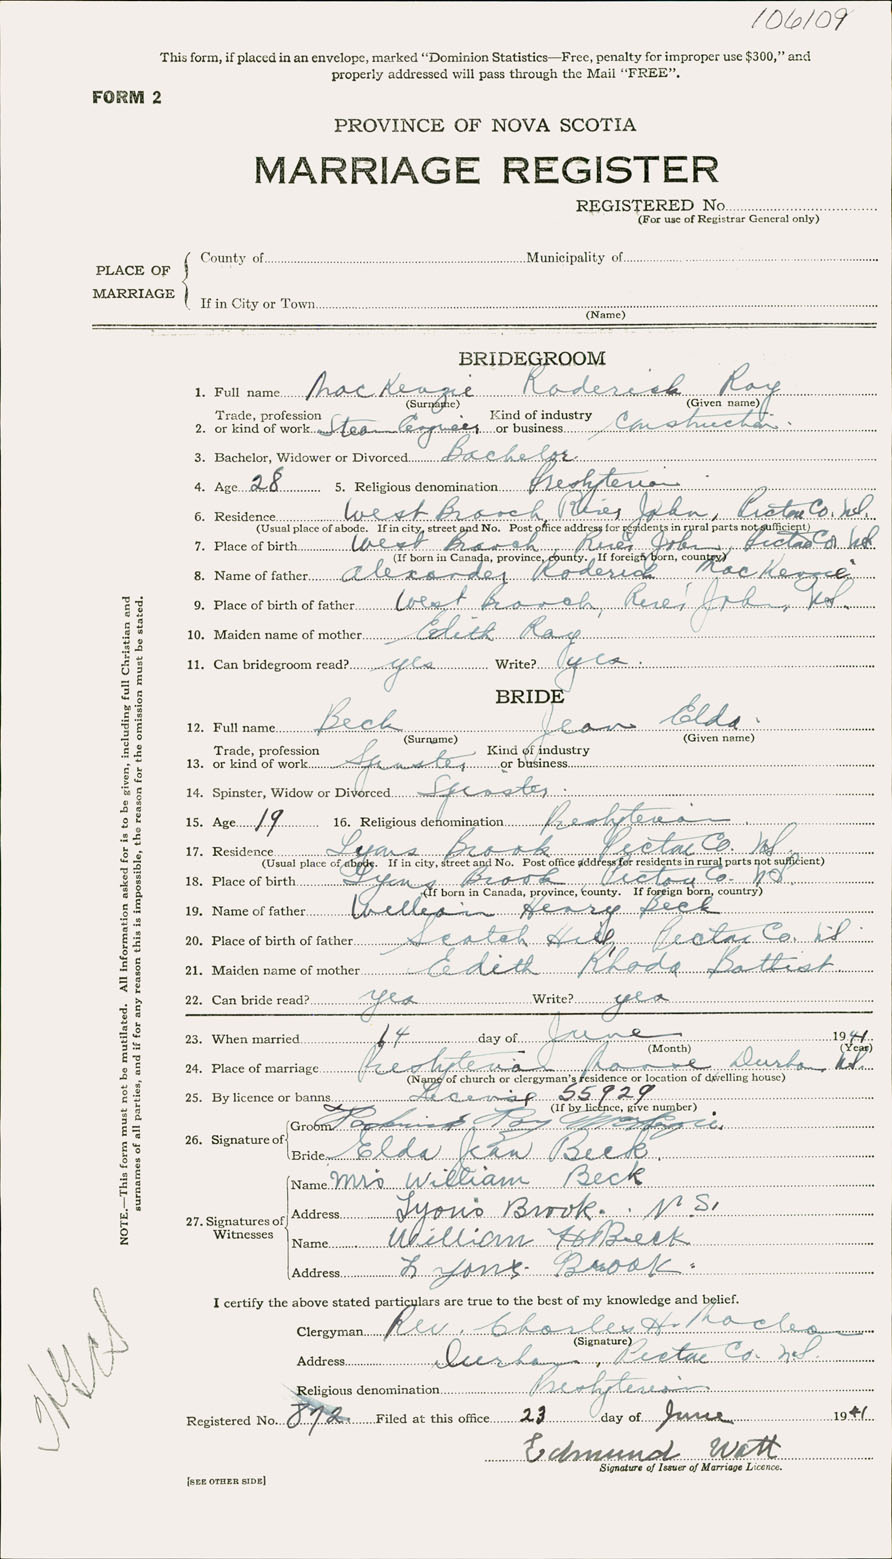 106109
This form, if placed in an envelope, marked “Dominion Statistics—Free, penalty for improper use $300,” and
properly addressed will pass through the Mail “FREE”.
FORM 2
PROVINCE OF NOVA SCOTIA
MARRIAGE REGISTER
REGISTERED No.
(For use of Registrar General only)
PLACE OF MARRIAGE
County of Municipality of
If in City or Town
(Name)
BRIDEGROOM
1. Full name MacKenzie Roderick Ray
(Surname) (Given name)
Trade, profession Kind of industry
2. or kind of work Steam Engineer or business Construction.
3. Bachelor, Widower or Divorced Bachelor.
4. Age 28 5. Religious denomination Presbyterian
6. Residence West Branch, River John, Pictou Co. N.S.
(Usual place of abode. If in city, street and No. Post office address for residents in rural parts not sufficient)
7. Place of birth West Branch River John, Pictou Co. N.S.
(If born in Canada, province, county. If foreign born, country)
8. Name of father Alexander Roderick MacKenzie
9. Place of birth of father West Branch, River John, N.S.
10. Maiden name of mother Edith Ray
11. Can bridegroom read? yes Write? yes.
BRIDE
12. Full name Beck Jean Elda.
(Surname) (Given name)
Trade, profession Kind of industry
13. or kind of work Spinster or business
14. Spinster, Widow or Divorced Spinster.
15. Age 19 16. Religious denomination Presbyterian
17. Residence Lyons Brook Pictou Co. N.S.
(Usual place of abode. If in city, street and No. Post office address for residents in rural parts not sufficient)
18. Place of birth Lyons Brook, Pictou Co. N.S.
(If born in Canada, province, county. If foreign born, country)
19. Name of father William Henry Beck
20. Place of birth of father Scotch Hill, Pictou Co. N.S.
21. Maiden name of mother Edith Rhoda Battist
22. Can bride read? yes Write? yes
23. When married 14 day of June 1941
(Month) (Year)
24. Place of marriage Presbyterian Manse Durham N.S.
(Name of church or clergyman's residence or location of dwelling house)
25. By licence or banns License 55929
(If by licence, give number)
26. Signature of
Groom Roderick Ray MacKenzie
Bride Elda Jean Beck.
27. Signatures of Witnesses
Name Mrs William Beck
Address Lyons Brook. N.S.
Name William H Beck
Address Lyons Brook.
I certify the above stated particulars are true to the best of my knowledge and belief.
Clergyman Rev. Charles H. MacLean
(Signature)
Address Durham, Pictou Co. N.S.
Religious denomination Presbyterian
Registered No. 872 Filed at this office 23 day of June 1941
Edmund Watt
Signature of Issuer of Marriage Licence.
[SEE OTHER SIDE]
NOTE.—This form must not be mutilated. All information asked for is to be given, including full Christian and
surnames of all parties, and if for any reason this is impossible, the reason for the omission must be stated.